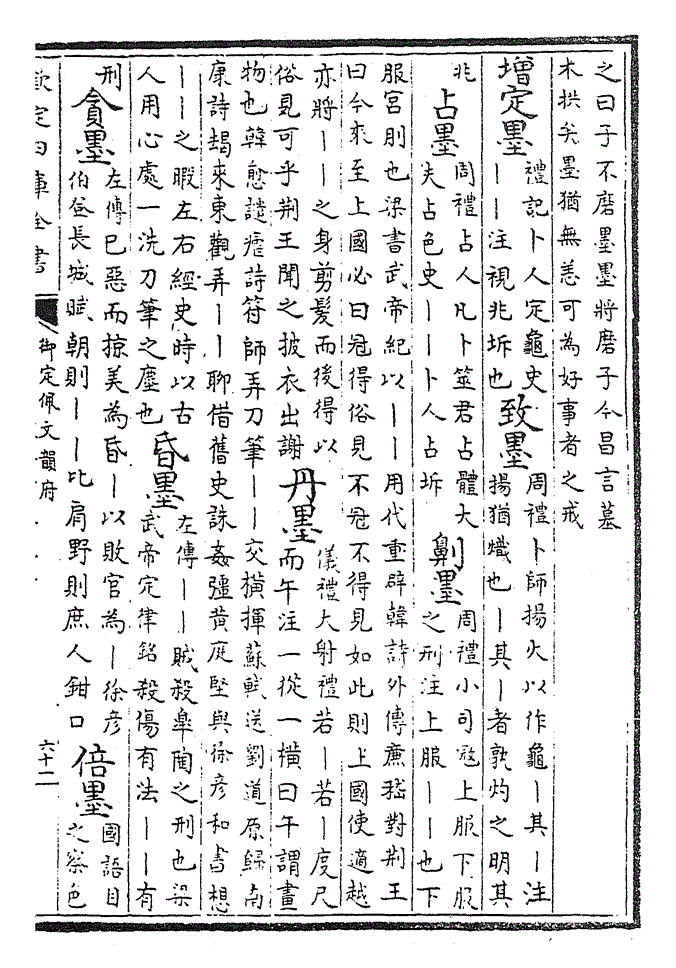 之曰子不磨墨墨將磨子今昌言墓
木拱矣墨猶無恙可為好事者之戒
增定墨
禮記卜人定龜史
丨丨注視兆坼也
致墨
周禮卜師揚火以作龜丨其丨注
揚猶熾也丨其丨者孰灼之明其
兆
占墨
周禮占人凡卜筮君占體大
夫占色史丨丨卜人占坼
劓墨
周禮小司宼上服下服
之刑注上服丨丨也下
服宫刖也梁書武帝紀以丨丨用代重辟韓詩外傳亷稽對荆王
曰今來至上國必曰冠得俗見不冠不得見如此則上國使適越
亦將丨丨之身剪髮而後得以
俗見可乎荆王聞之披衣出謝
丹墨
儀禮大射禮若丨若丨度尺
而午注一從一橫曰午謂畫
物也韓愈譴瘧詩符師弄刀筆丨丨交橫揮蘇軾送劉道原歸南
康詩朅來東觀弄丨丨聊借舊史誅姦彊黄庭堅與徐彦和書想
丨丨之暇左右經史時以古
人用心處一洗刀筆之塵也
昏墨
左傳丨丨賊殺臯陶之刑也梁
武帝定律銘殺傷有法丨丨有
刑
貪墨
左傳已惡而掠美為昏丨以敗官為丨徐彦
伯登長城賦朝則丨丨比肩野則庶人鉗口
倍墨
國語目
之察色
欽定四庫全書
御定佩文韻府
六十二